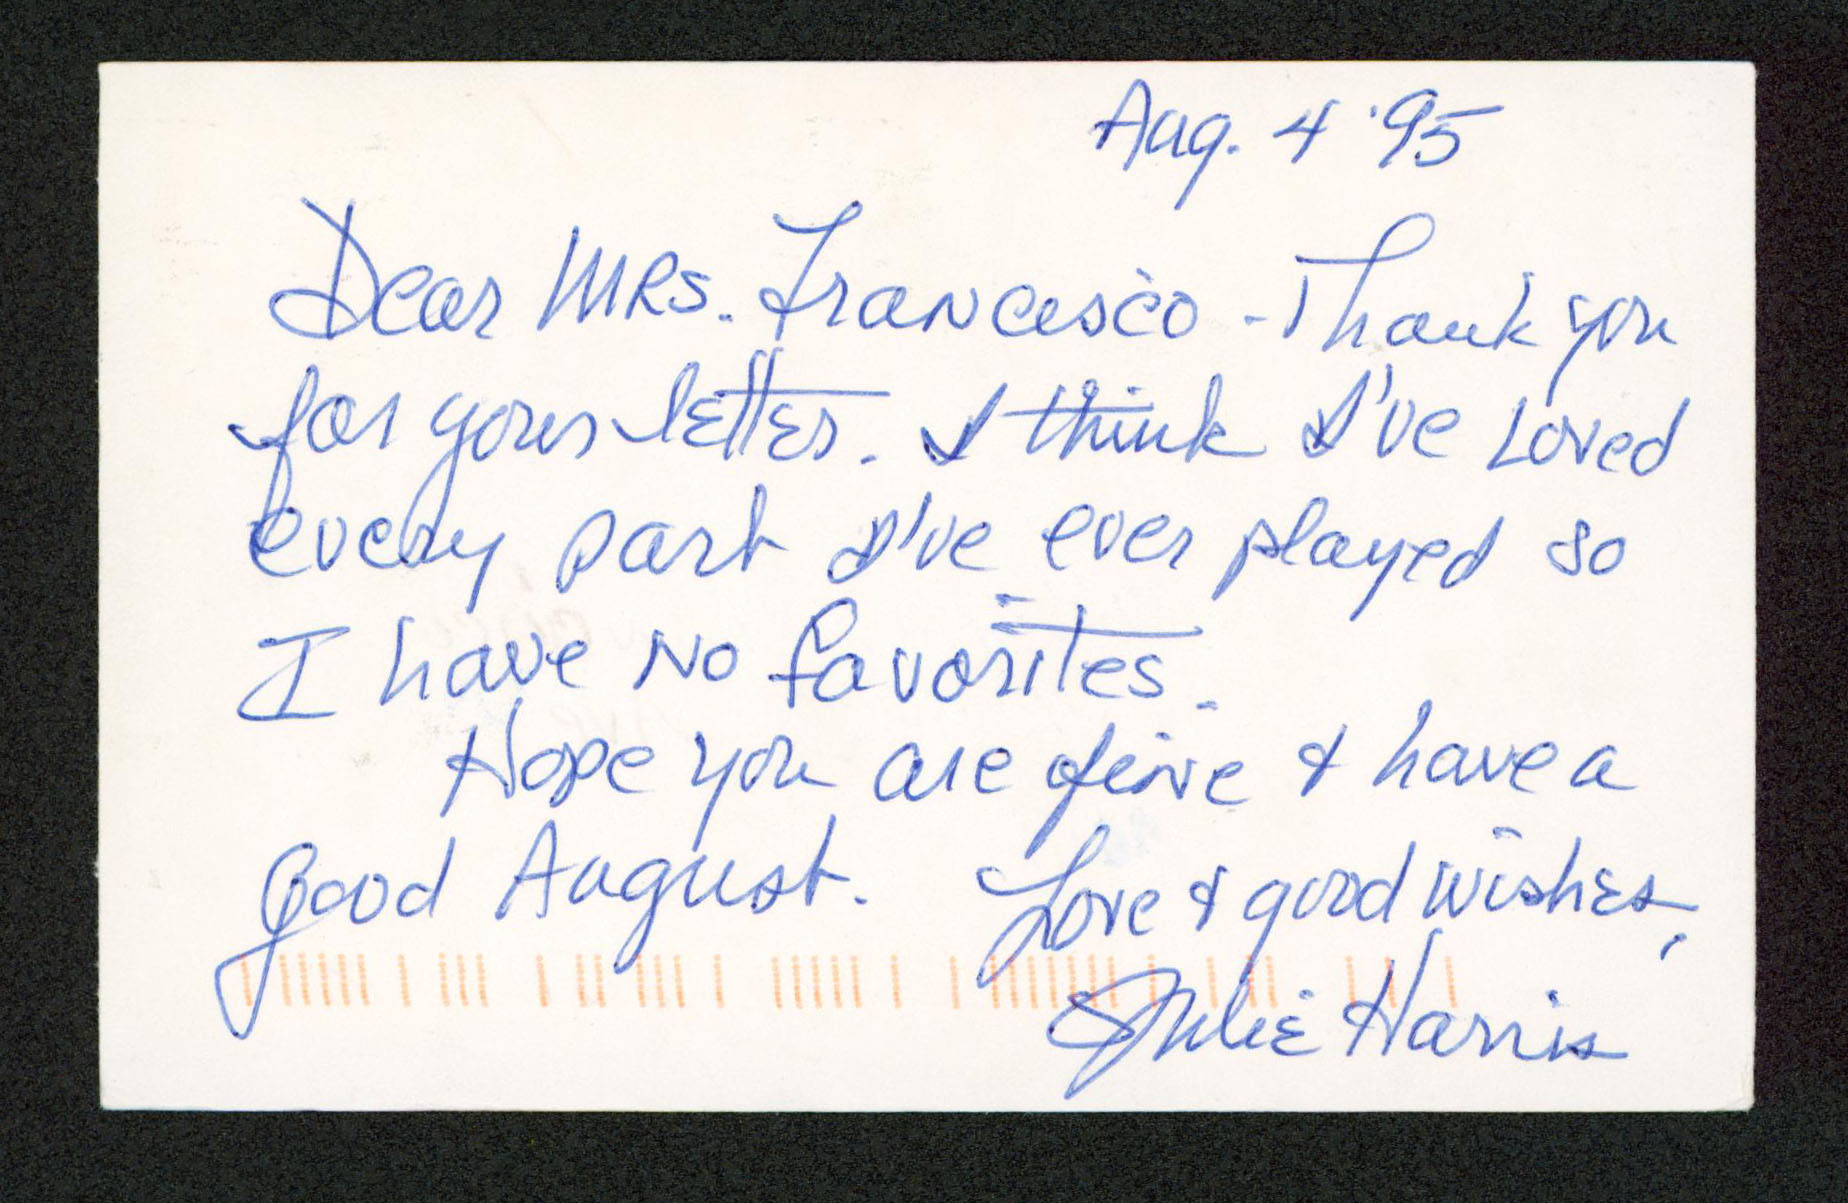 Aug. 4 '95
Dear MRS. Francisco - Thank you
for your letter. I think I've Loved
every part I've ever played so
I have No favorites.
Hope you are fine & have a
good August. Love & good wishes,
Julie Harris